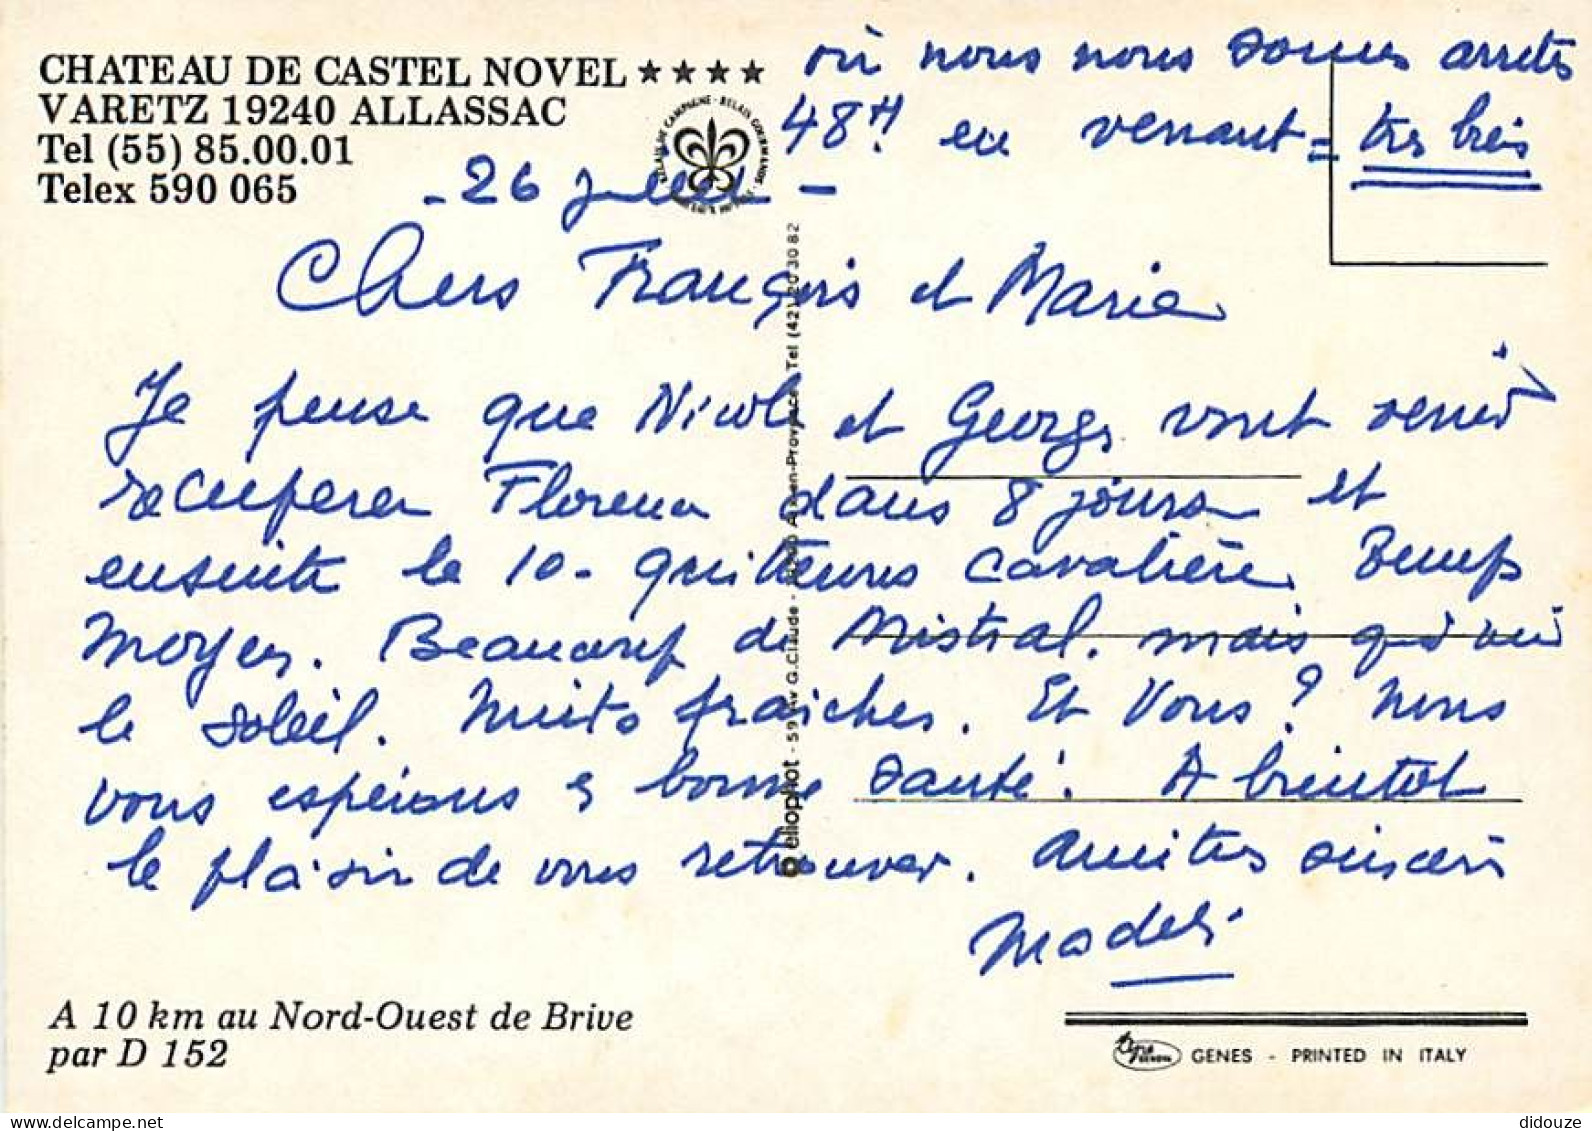 CHATEAU DE CASTEL NOVEL ★★★★
VARETZ 19240 ALLASSAC
Tel (55) 85.00.01
Telex 590 065
où nous nous sommes arretés
48H en venant = très bien
- 26 juillet -
Chers François et Marie
Je pense que Nicole et Georges vont venir
récupérer Florence dans 8 jours et
ensuite le 10 - quitterons Cavalière. Temps
moyen. Beaucoup de Mistral. mais
le soleil. Nuits fraiches. Et Vous? Nous
vous espérons en bonne santé. A bientôt
le plaisir de vous retrouver. Amitiés sincères
A 10 km au Nord-Ouest de Brive
par D 152
RELAIS DE CAMPAGNE - RELAIS GOURMANDS
éliophot - 59 Av G. Claude - Aix-en-Provence - Tel (42) 20 30 82
GENES - PRINTED IN ITALY
didouze
delcampe.net